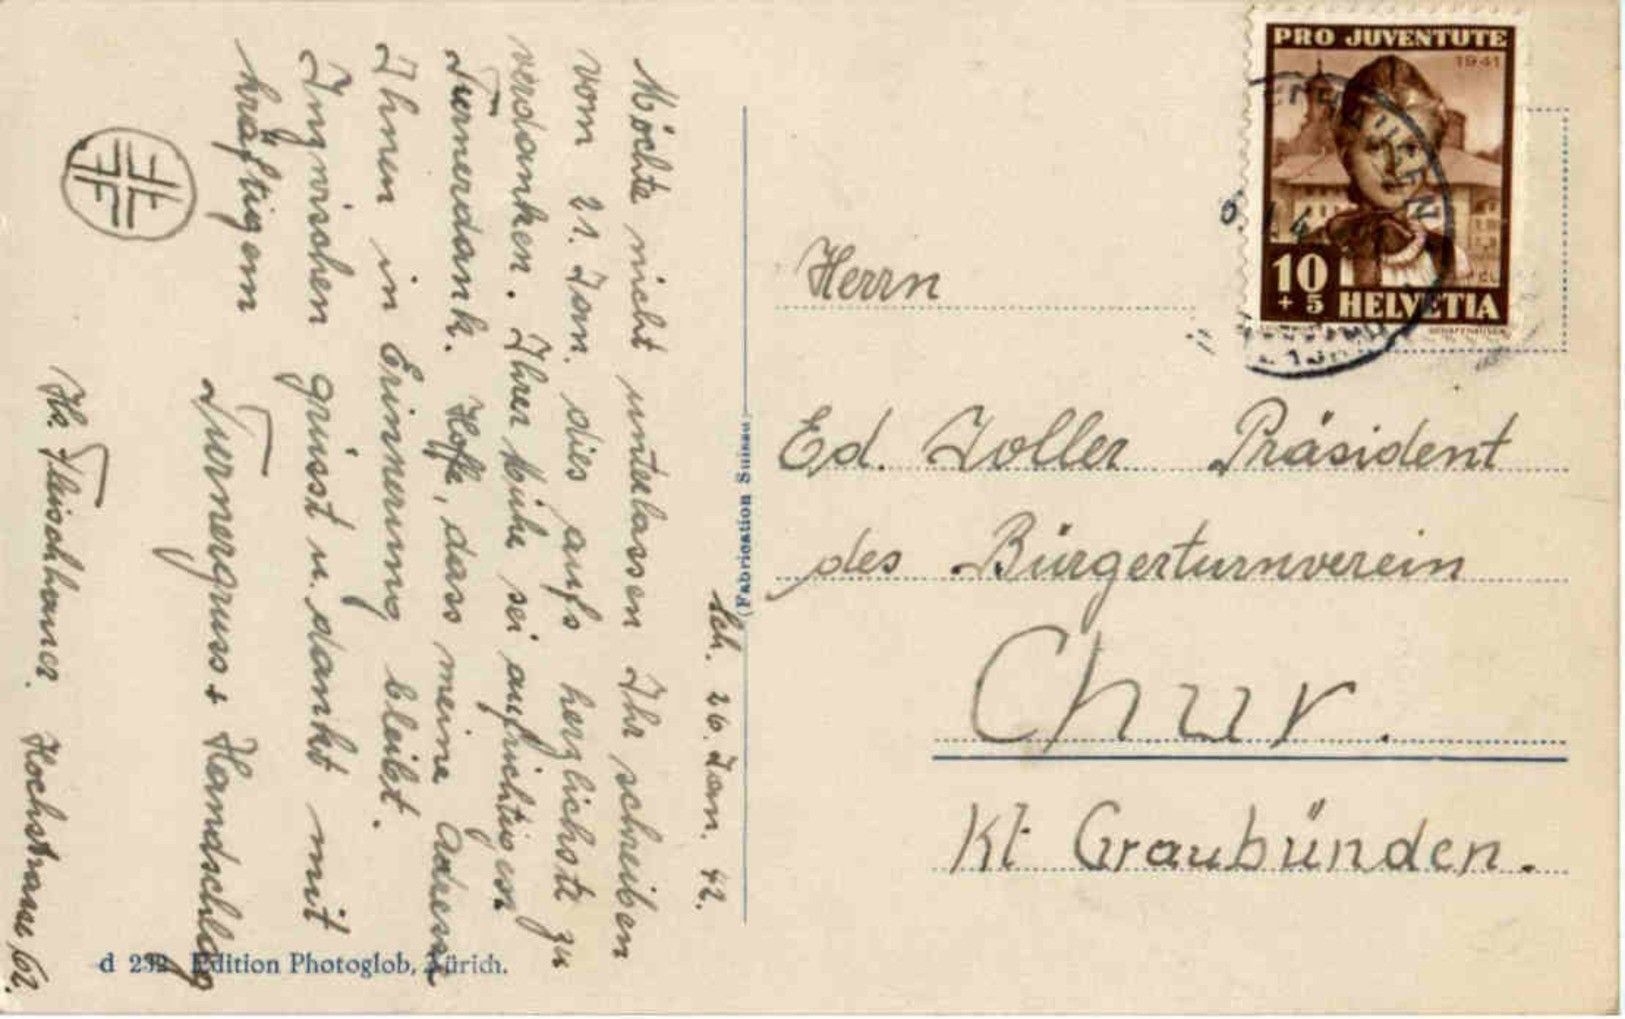 Sch. 26. Jan. 42.
Möchte nicht unterlassen Ihr schreiben
vom 21. Jan. dies aufs herzlichste zu
verdanken. Ihrer Mühe sei aufrichtigen
Turnerdank. Hoffe, dass meine Adresse
Ihnen in Erinnerung bleibt.
Inzwischen grüsst u. dankt mit
kräftigem
Turnergruss & Handschlag
Hs. Fleischhauer. Hochstrasse, 62.
FFFF
d 232 Edition Photoglob, Zürich.
(Fabrication Suisse)
PRO JUVENTUTE
1941
10
+5 HELVETIA
Herrn
Ed. Zoller Präsident
des Bürgerturnverein
Chur.
Kt Graubünden.